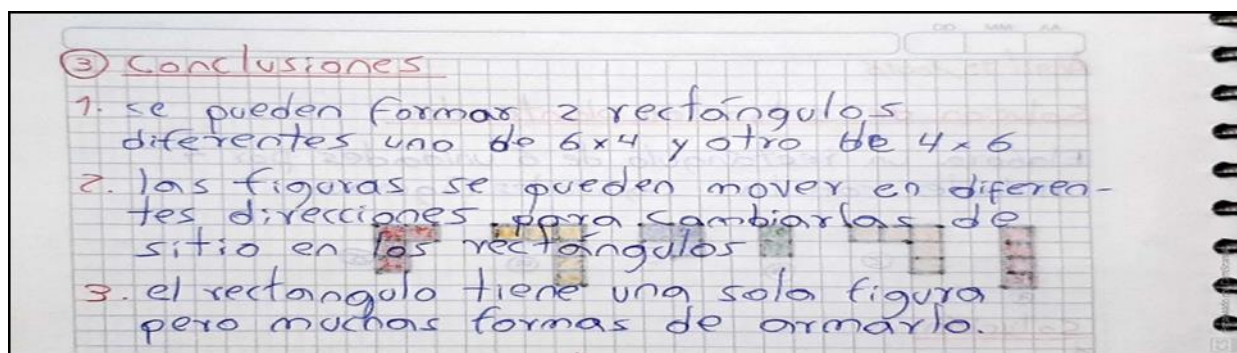 ③ Conclusiones
1. se pueden formar 2 rectángulos
diferentes uno de 6x4 y otro de 4x6
2. las figuras se pueden mover en diferen-
tes direcciones para cambiarlas de
sitio en los rectángulos
3. el rectangulo tiene una sola figura
pero muchas formas de armarlo.